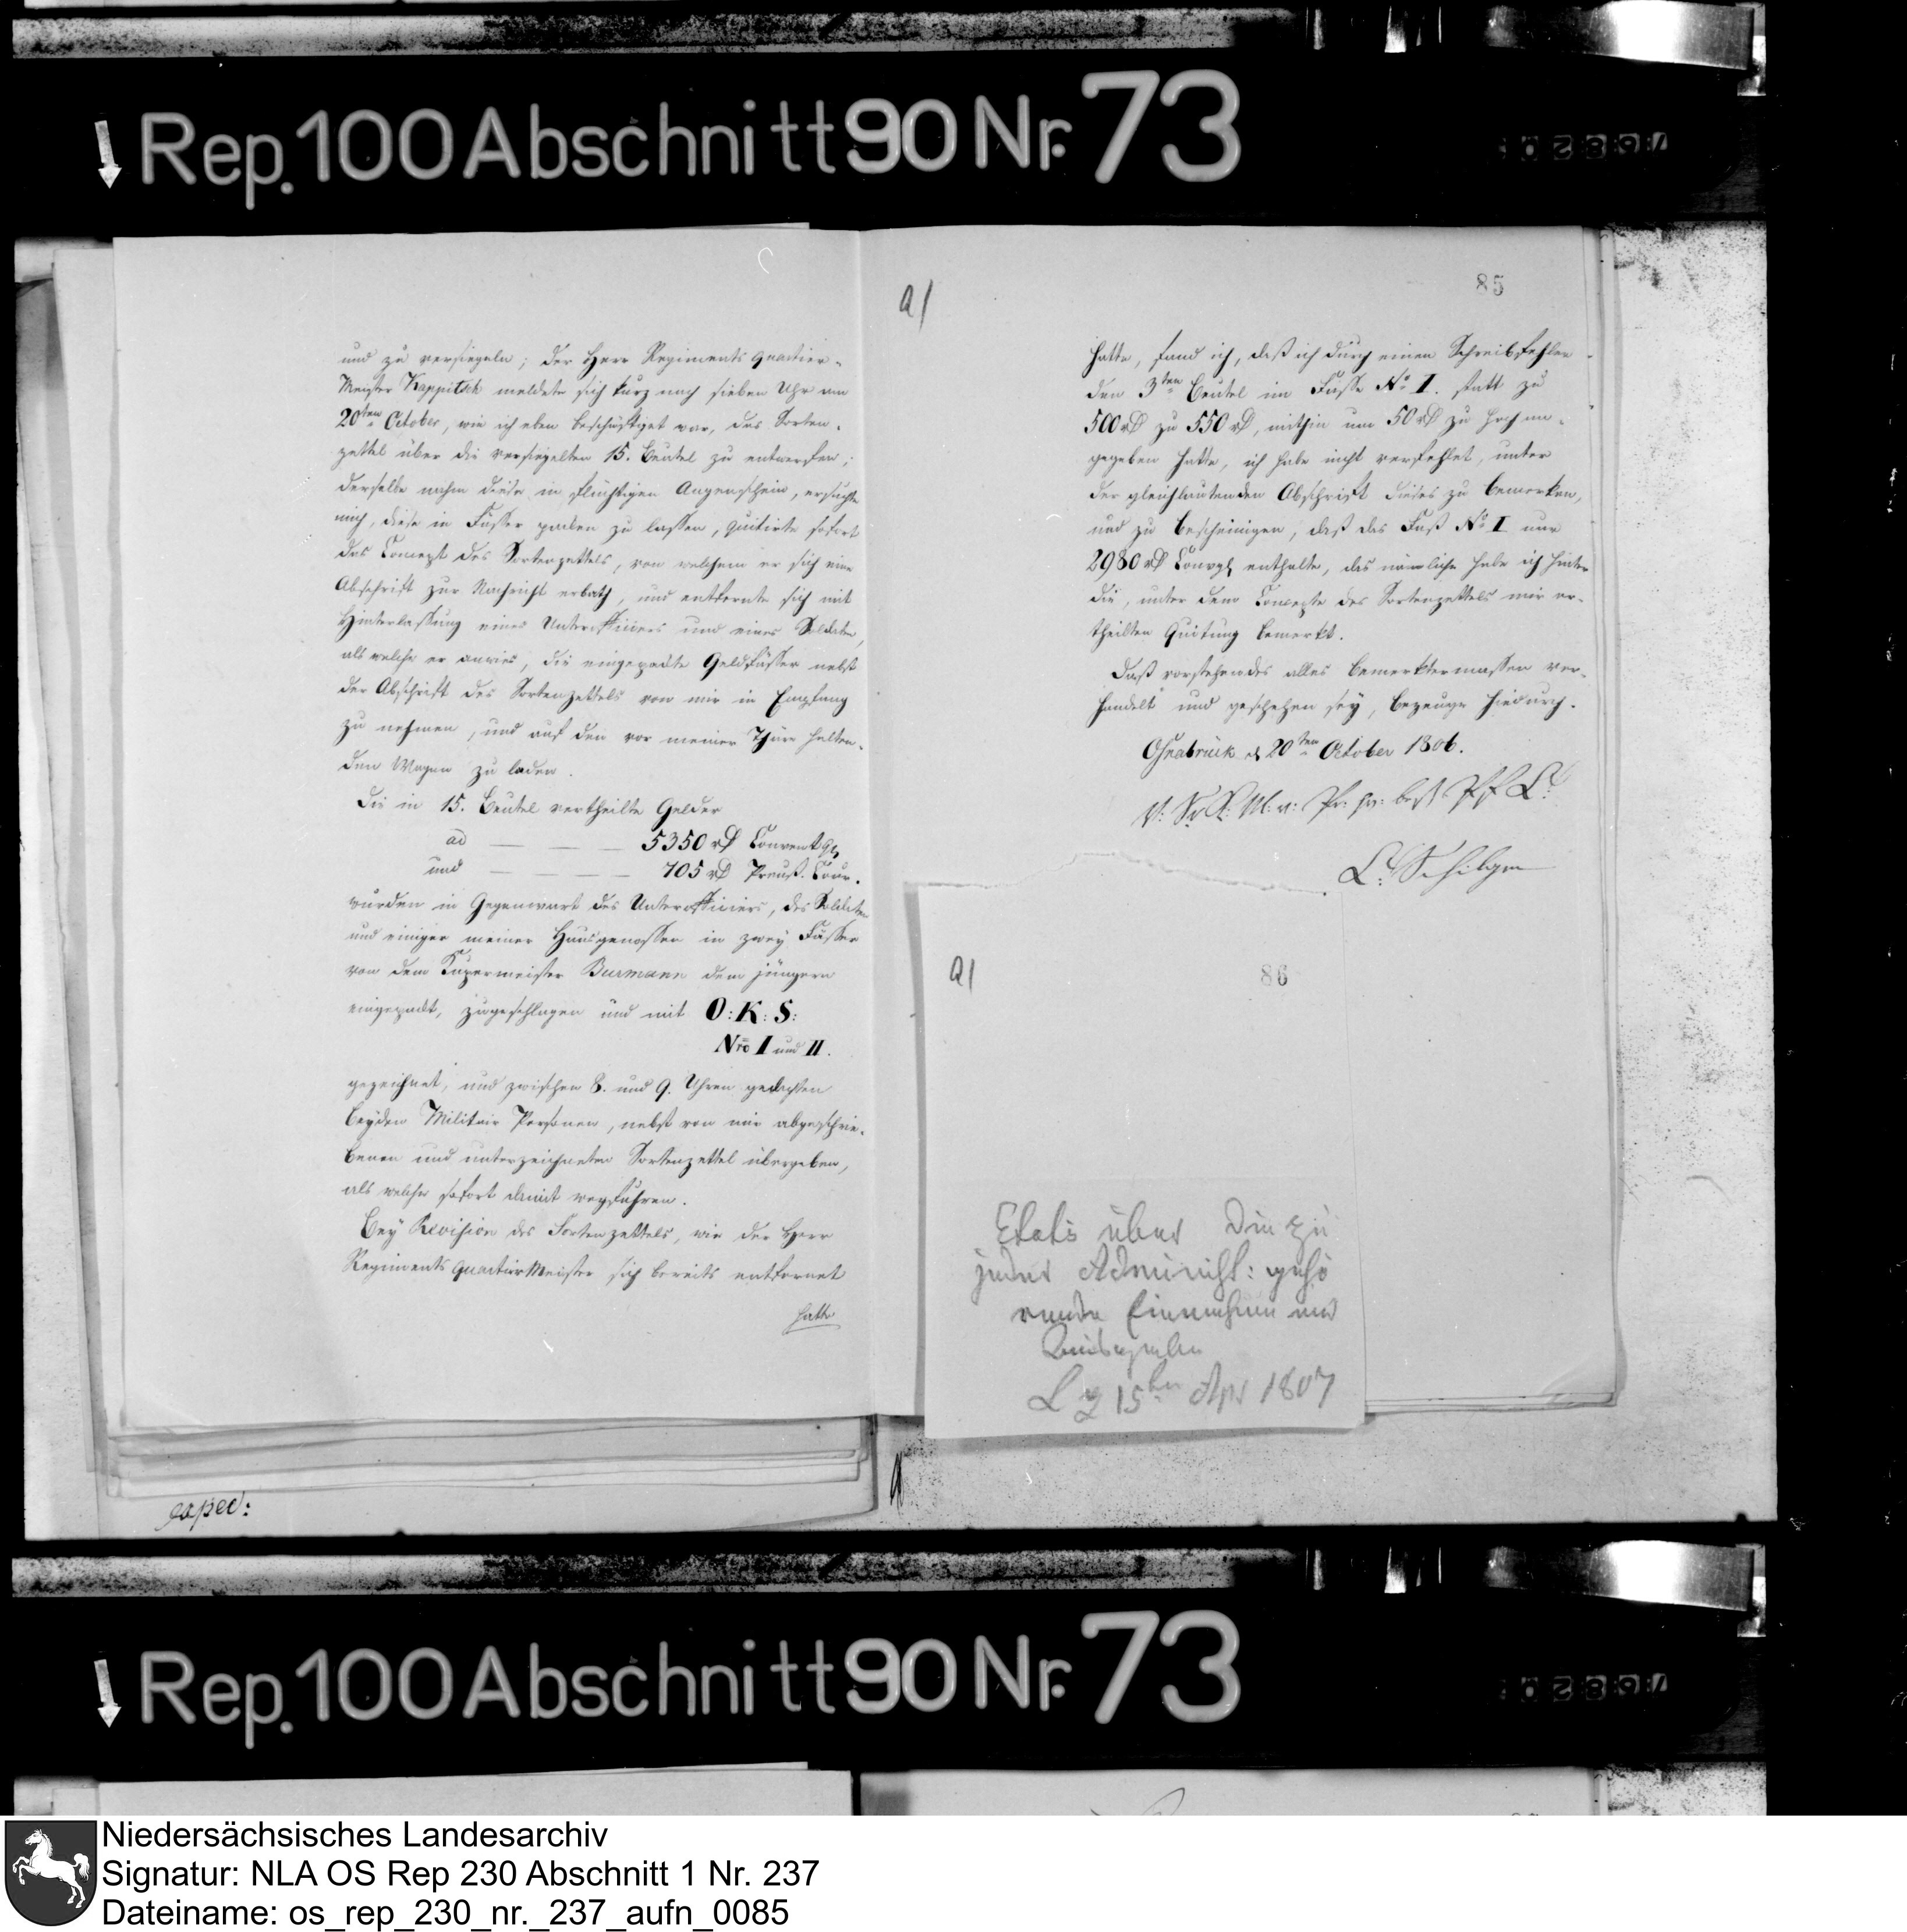 Rep. 100 Abschnitt 90 Nr. 73
a/
85
und zu versiegeln; der Herr Regiments Quartier-
Meister Kappitsch meldete sich kurz nach sieben Uhr am
20ten October, wie ich eben beschäftiget war, das Sorten-
zettel über die versiegelten 15. Beutel zu entwerfen;
derselbe nahm diese in flüchtigen Augenschein, ersuchte
mich, diese in Fässer packen zu lassen, quitirte sofort
das Concept des Sortenzettels, von welchem er sich eine
Abschrift zur Nachricht erbath, und entfernte sich mit
Hinterlassung eines Unterofficiers und eines Soldaten,
als welche er anwies, die eingepackte Geldfässer nebst
der Abschrift des Sortenzettels von mir in Empfang
zu nehmen, und auf den vor meiner Thüre halten-
den Wagen zu laden.
Die in 15. Beutel vertheilte Gelder
ad — — — 5350 rD Convent
und — — — — 705 rD Preuß. Cour.
wurden in Gegenwart des Unterofficiers, des Soldaten
und einiger meiner Hausgenossen in zwey Fässer
von dem Küpermeister Burmann dem jüngern
eingepackt, zugeschlagen und mit O: K: S:
Nro I und II.
gezeichnet, und zwischen 8. und 9. Uhren gedachten
beyden Militair Personen, nebst von mir abgeschrie-
benen und unterzeichneten Sortenzettel übergeben,
als welche sofort damit wegfuhren.
Bey Revision des Sortenzettels, wie der Herr
Regiments QuartierMeister sich bereits entfernet
hatte
hatte, fand ich, daß ich durch einen Schreibfehler
den 3ten Beutel im Fasse No I. statt zu
500 rD zu 550 rD, mithin um 50 rD zu hoch an-
gegeben hatte, ich habe nicht verfehlet, unter
der gleichlautenden Abschrift dieses zu bemerken,
und zu bescheinigen, daß das Faß No I nur
2980 rD enthalte, das nämliche habe ich hinter
die, unter dem Concepte des Sortenzettels mir er-
theilten Quitung bemerkt.
Daß vorstehendes alles bemerktermassen ver-
handelt und geschehen sey, bezeuge hiedurch.
Osnabrück d 20ten October 1806.
a/
86
Etats über die zu
jeder Administ: gehö
rende Einnahme und
Ausgaben
15ten Apr 1807
exped:
Rep. 100 Abschnitt 90 Nr. 73
Niedersächsisches Landesarchiv
Signatur: NLA OS Rep 230 Abschnitt 1 Nr. 237
Dateiname: os_rep_230_nr._237_aufn_0085